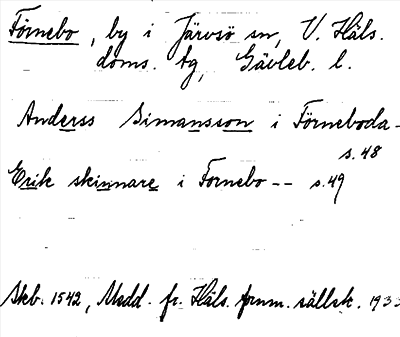 Förnebo, by i Järvsö sn, V. Häls.
doms. tg, Gävleb. l.
Anderss Simansson i Förneboda -
s. 48
Erik skinnare i Fornebo -- s. 49
Skb. 1542, Medd. fr. Häls. fornm. sällsk. 1933